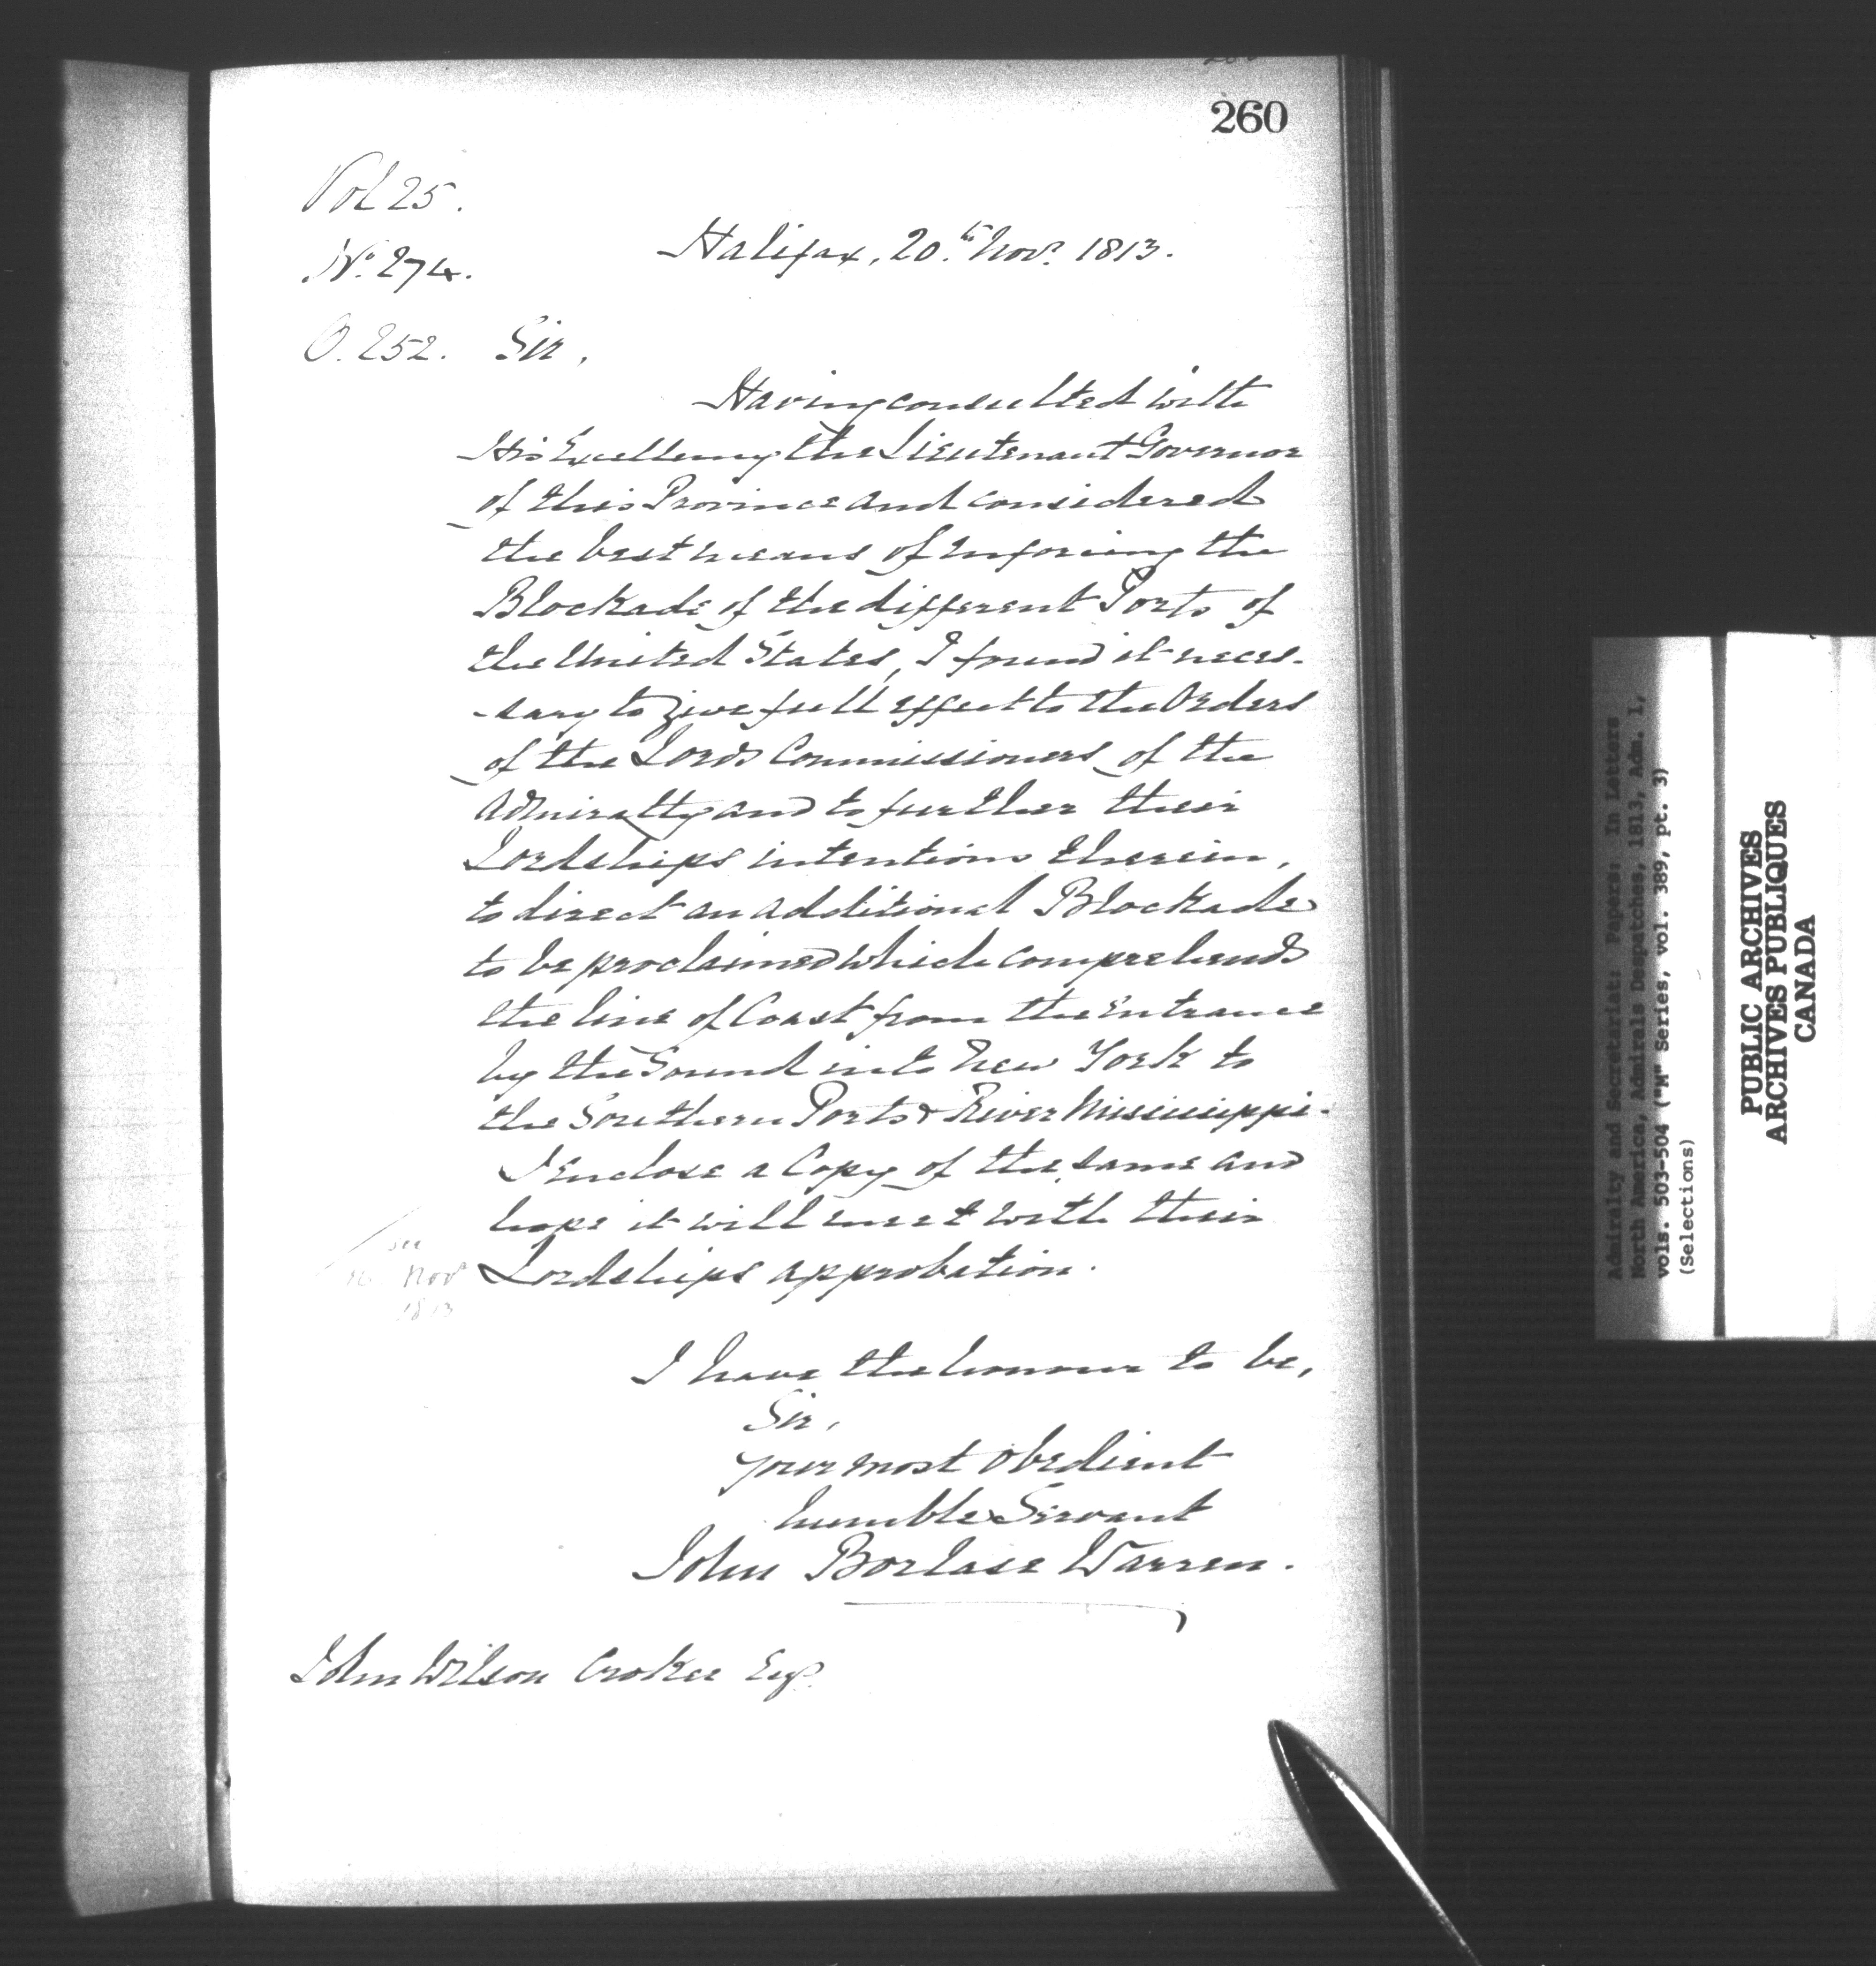 260
Vol 25.
No. 274.
Halifax, 20.th Novr. 1813.
O. 252. Sir,
Having consulted with
His Excellency the Lieutenant Governor
of this Province and considered
the best means of enforcing the
Blockade of the different Ports of
the United States, I found it neces-
-sary to give full effect to the Orders
of the Lords Commissioners of the
Admiralty and to further their
Lordships intentions therein,
to direct an additional Blockade
to be proclaimed which comprehends
the line of Coast from the Entrance
by the Sound into New York to
the Southern Ports & River Mississippi.
I enclose a Copy of the same and
hope it will meet with their
see
Nov
1813
Lordships approbation.
I have the honour to be,
Sir,
your most obedient
humble Servant
John Borlase Warren.
John Wilson Croker Esqr.
Admiralty and Secretariat: Papers: In Letters
North America, Admirals Despatches, 1813, Adm. 1,
vols. 503-504 ("M" Series, vol. 389, pt. 3)
(Selections)
PUBLIC ARCHIVES
ARCHIVES PUBLIQUES
CANADA